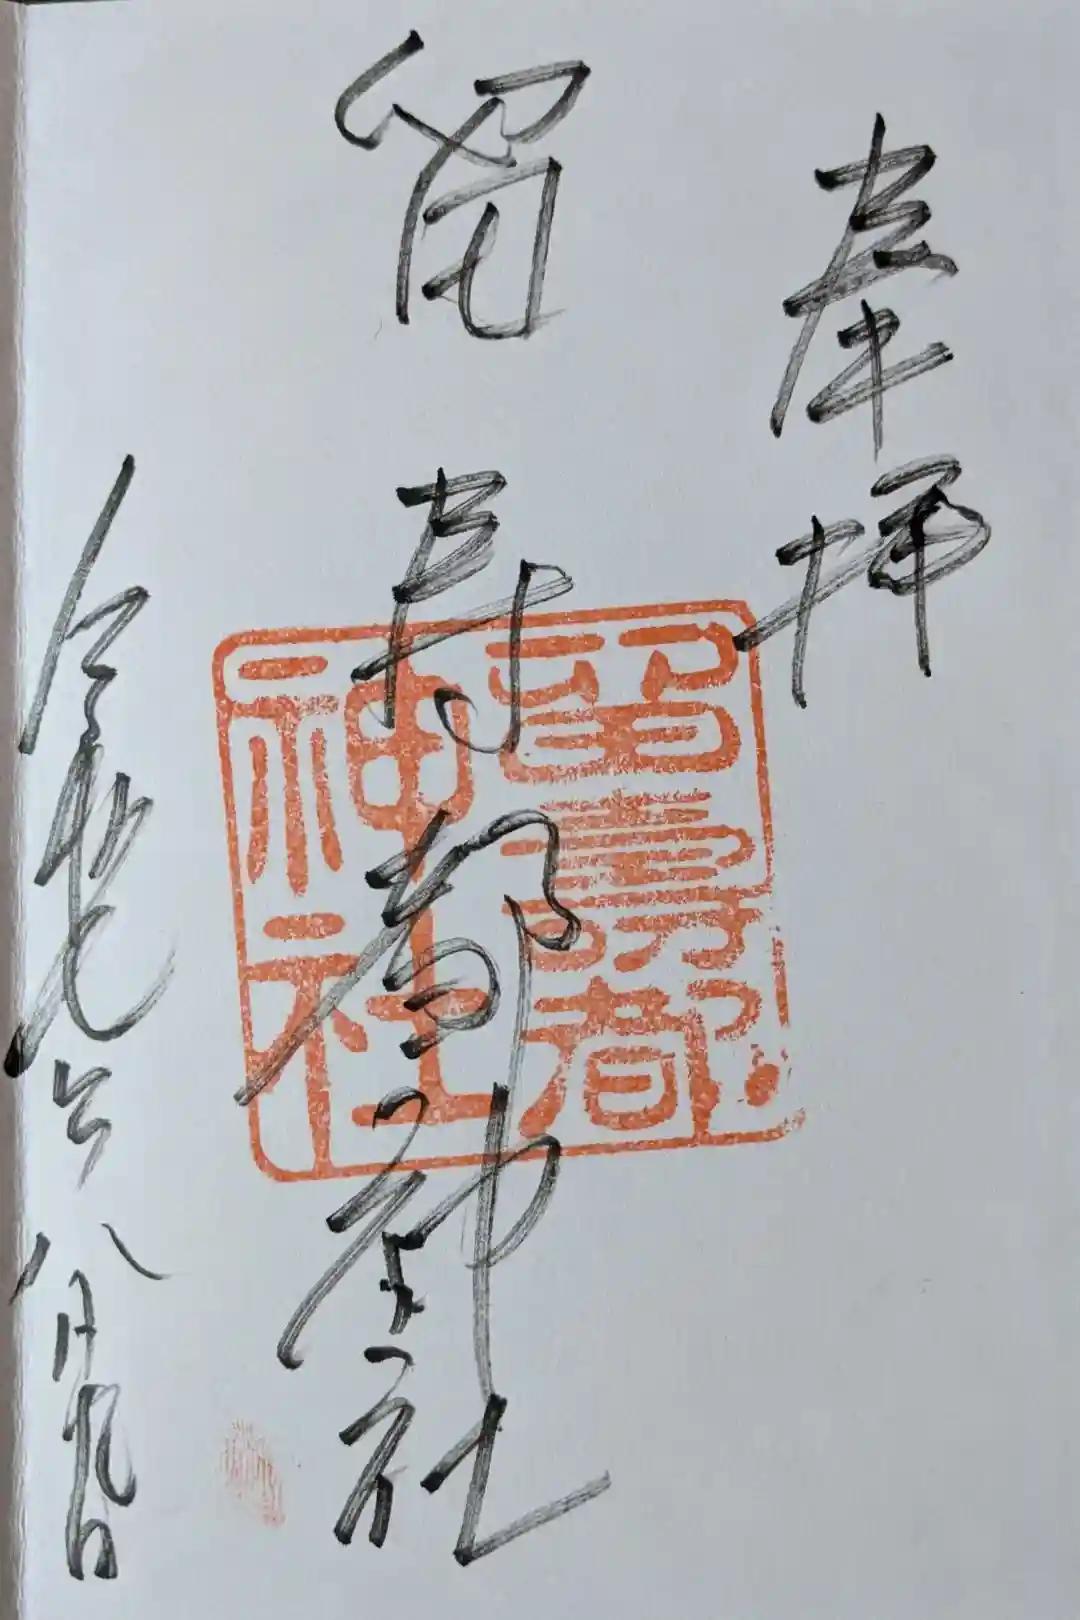 奉拝
留寿都神社
留寿都
神社
令和
年八月
日